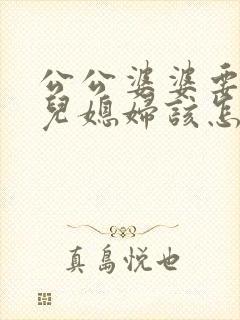 公公婆婆要
兒媳婦該怎
真島悅也